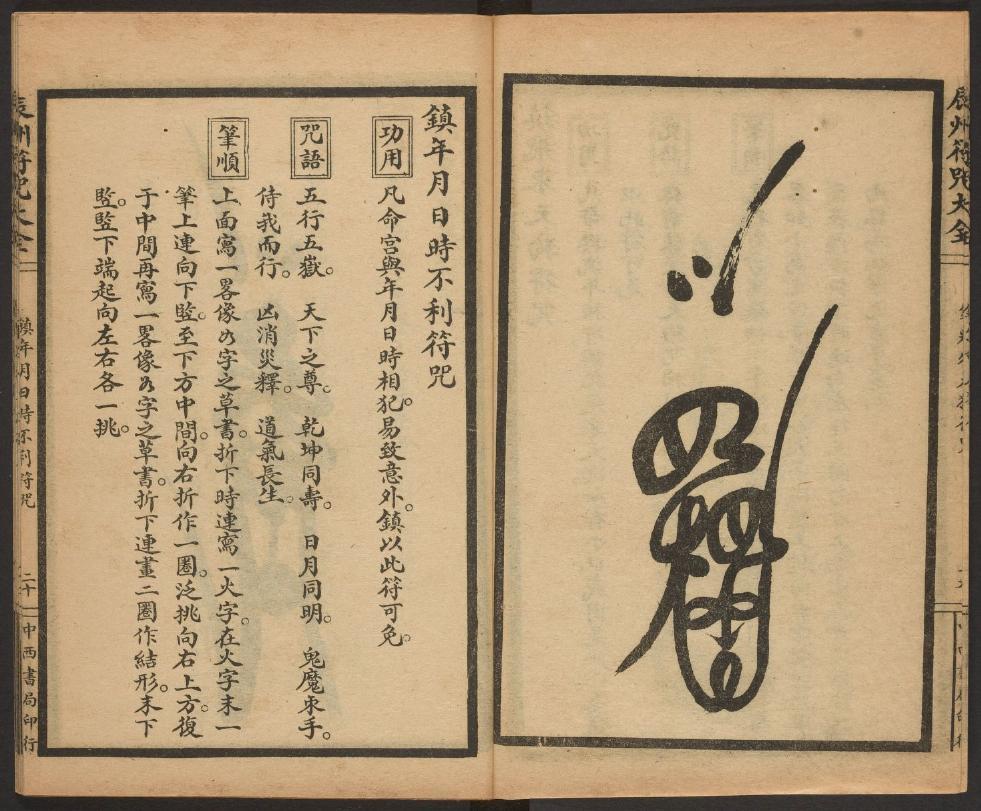 辰州符咒大全
鎮年月日時不利符咒
功用
凡命宮與年月日時相犯。易致意外。鎮以此符可免。
咒語
五行五嶽。天下之尊。乾坤同壽。日月同明。鬼魔束手。
侍我而行。凶消災釋。道氣長生。
筆順
上面寫一畧像乃字之草書。折下時連寫一火字。在火字末一
筆上連向下竪。至下方中間。向右折作一圈。泛挑向右上方。復
于中間再寫一畧像乃字之草書。折下連畫二圈作結形。末下
竪。竪下端起向左右各一挑。
辰州符咒大全
鎮年月日時不利符咒
二十
中西書局印行